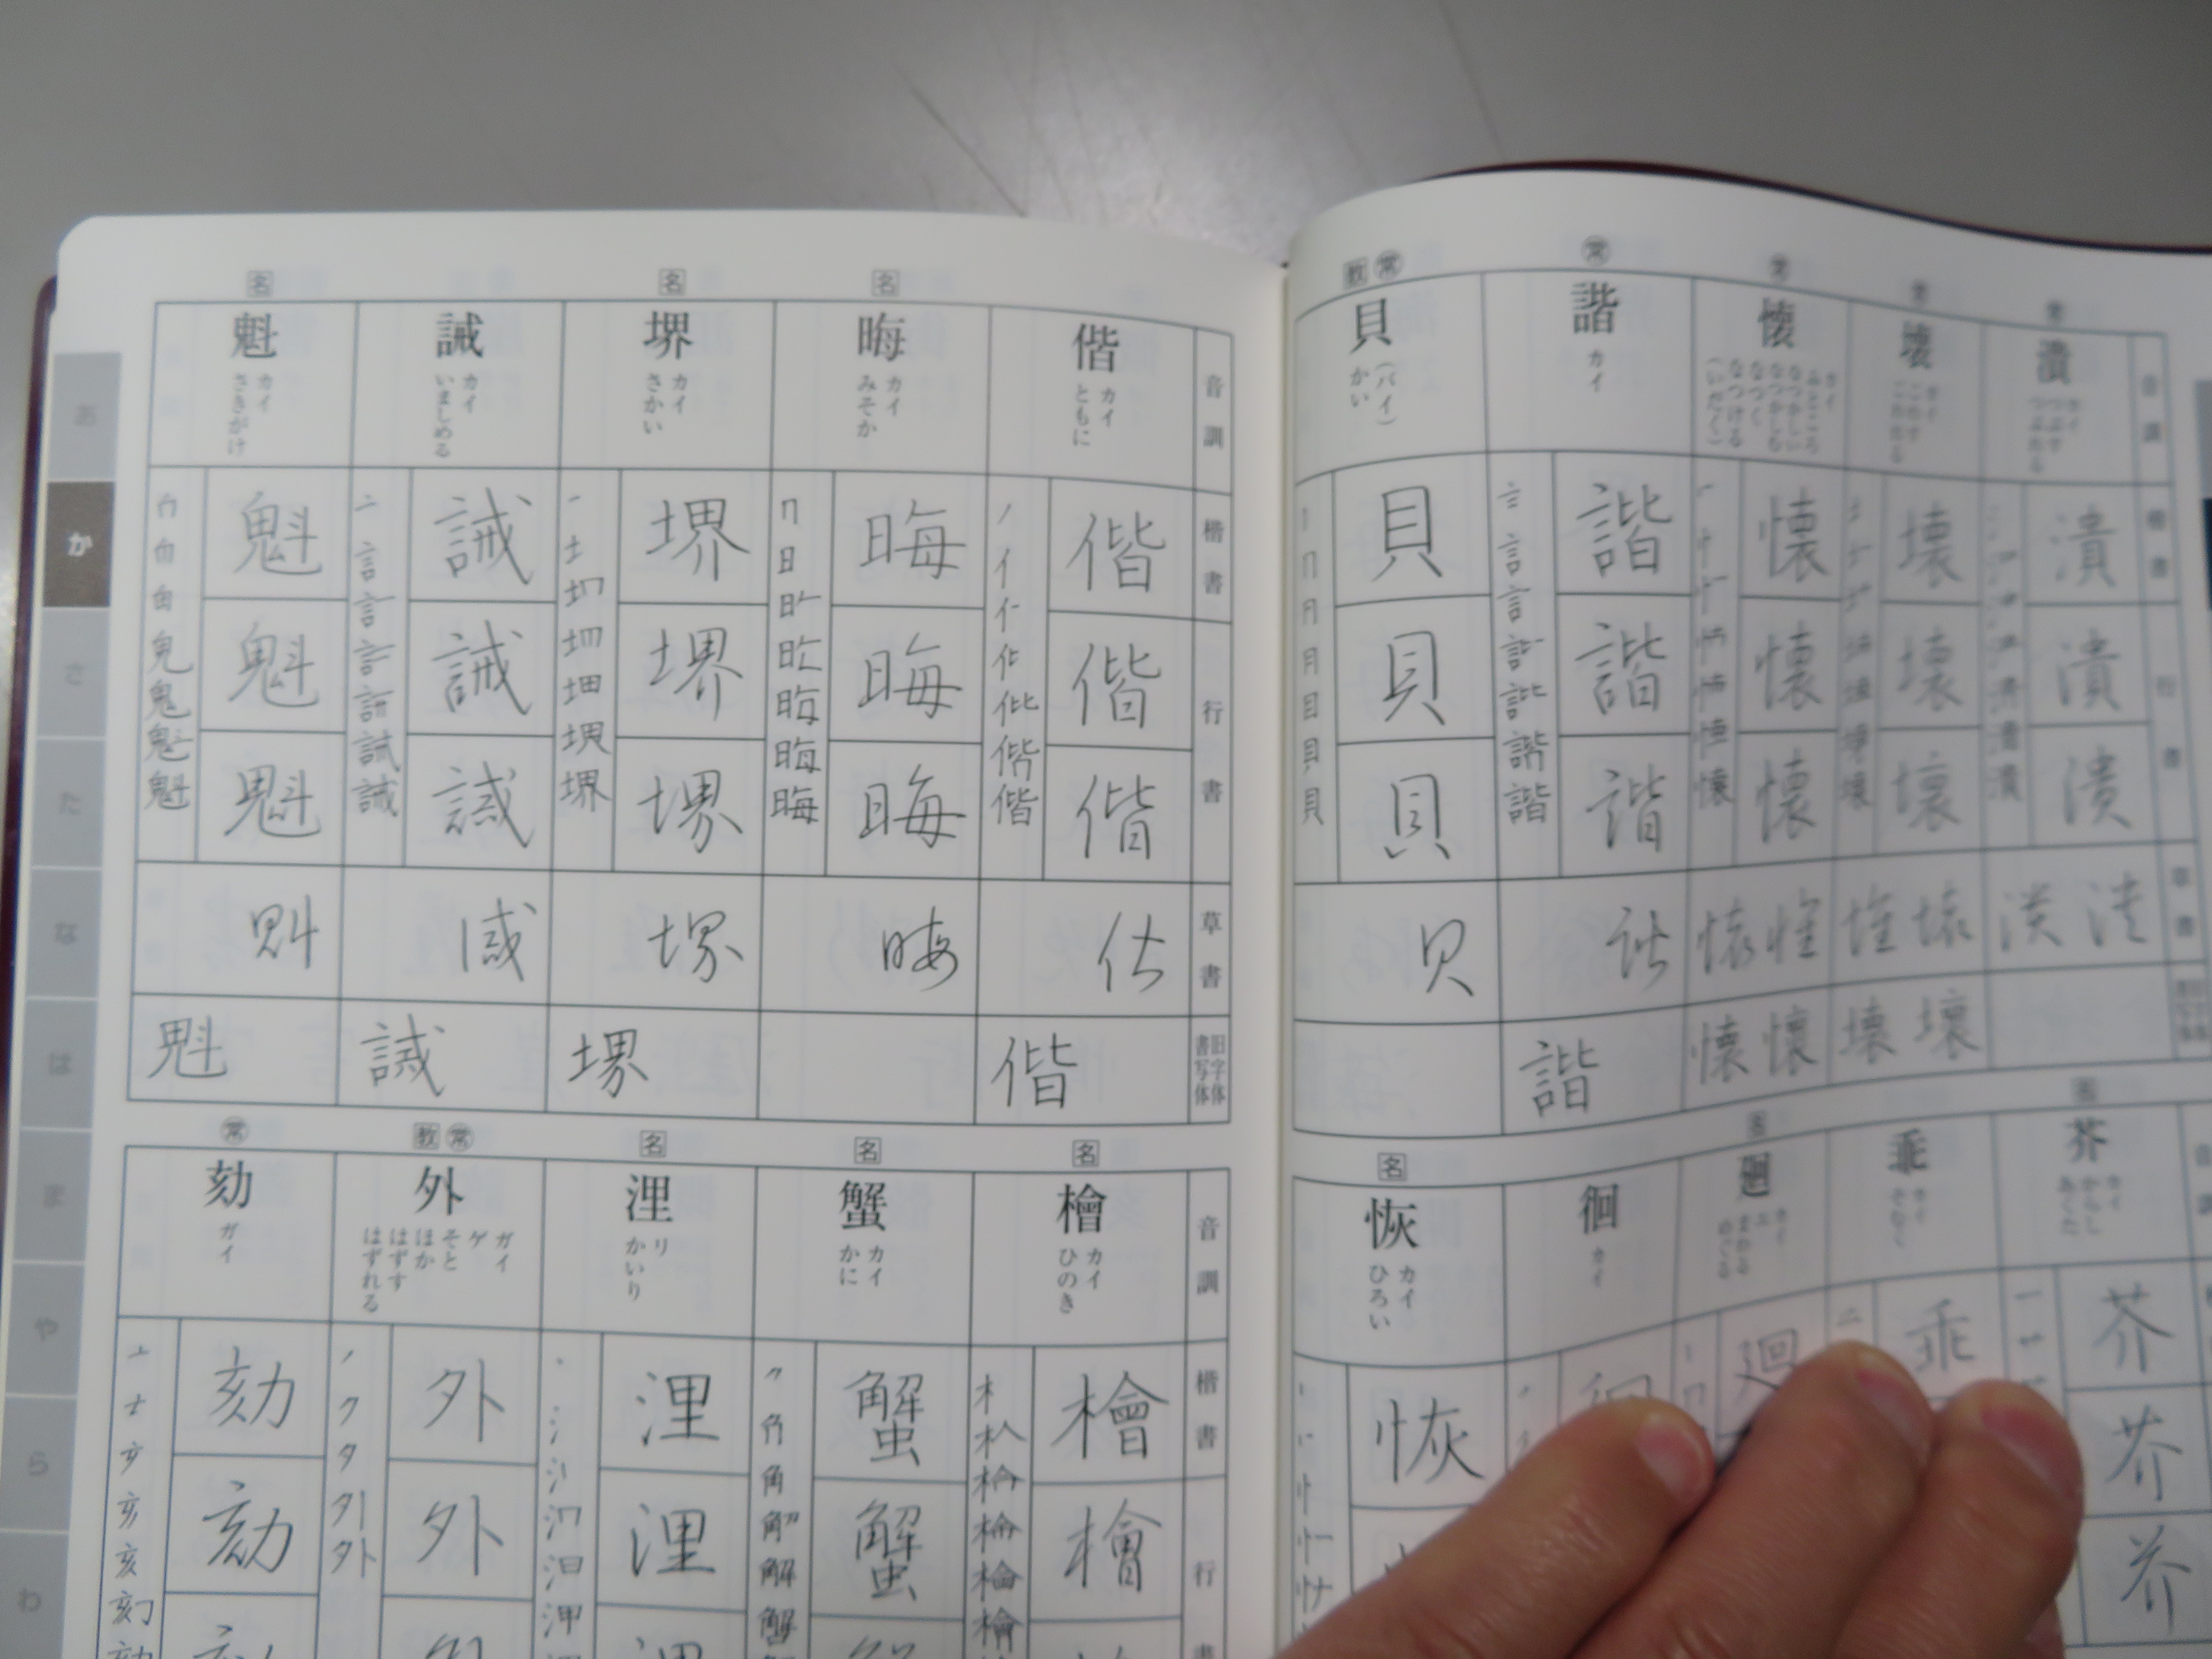 教 常
常
常
常
常
音訓
潰
カイ
つぶす
つぶれる
壊
カイ
こわす
こわれる
懐
カイ
ふところ
なつかしい
なつかしむ
なつく
なつける
(いだく)
諧
カイ
貝
(バイ)
かい
楷書
潰
壊
懐
諧
貝
行書
潰
壊
懐
諧
貝
潰
壊
懐
諧
貝
草書
潰
壊
懐
諧
貝
壊
壞
懐
懷
諧
名
名
名
芥
カイ
からし
あくた
乖
カイ
そむく
廻
カイ
エ
まわる
めぐる
徊
カイ
恢
カイ
ひろい
芥
乖
廻
徊
恢
芥
芥
名
名
名
音訓
偕
カイ
ともに
晦
カイ
みそか
堺
カイ
さかい
誡
カイ
いましめる
魁
カイ
さきがけ
楷書
偕
晦
堺
誡
魁
行書
偕
晦
堺
誡
魁
偕
晦
堺
誡
魁
草書
偕
晦
堺
誡
魁
旧字体
書写体
偕
堺
誡
魁
名
名
名
教 常
常
音訓
檜
カイ
ひのき
蟹
カイ
かに
浬
リ
かいり
外
ガイ
ゲ
そと
ほか
はずす
はずれる
劾
ガイ
楷書
檜
蟹
浬
外
劾
行書
檜
蟹
浬
外
劾
あ
か
さ
た
な
は
ま
や
ら
わ